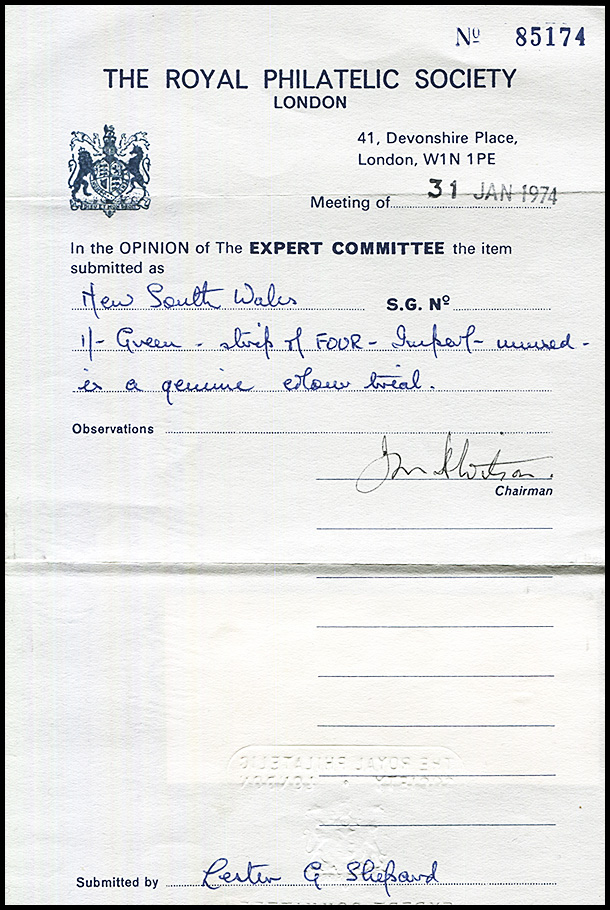 Nº 85174
THE ROYAL PHILATELIC SOCIETY
LONDON
41, Devonshire Place,
London, W1N 1PE
Meeting of 31 JAN 1974
In the OPINION of The EXPERT COMMITTEE the item
submitted as
New South Wales S.G. Nº
1/- Green - strip of FOUR - Imperf - unused -
is a genuine colour trial.
Observations
Chairman
THE ROYAL PHILATELIC
SOCIETY • LONDON
Submitted by Lester G Shepard